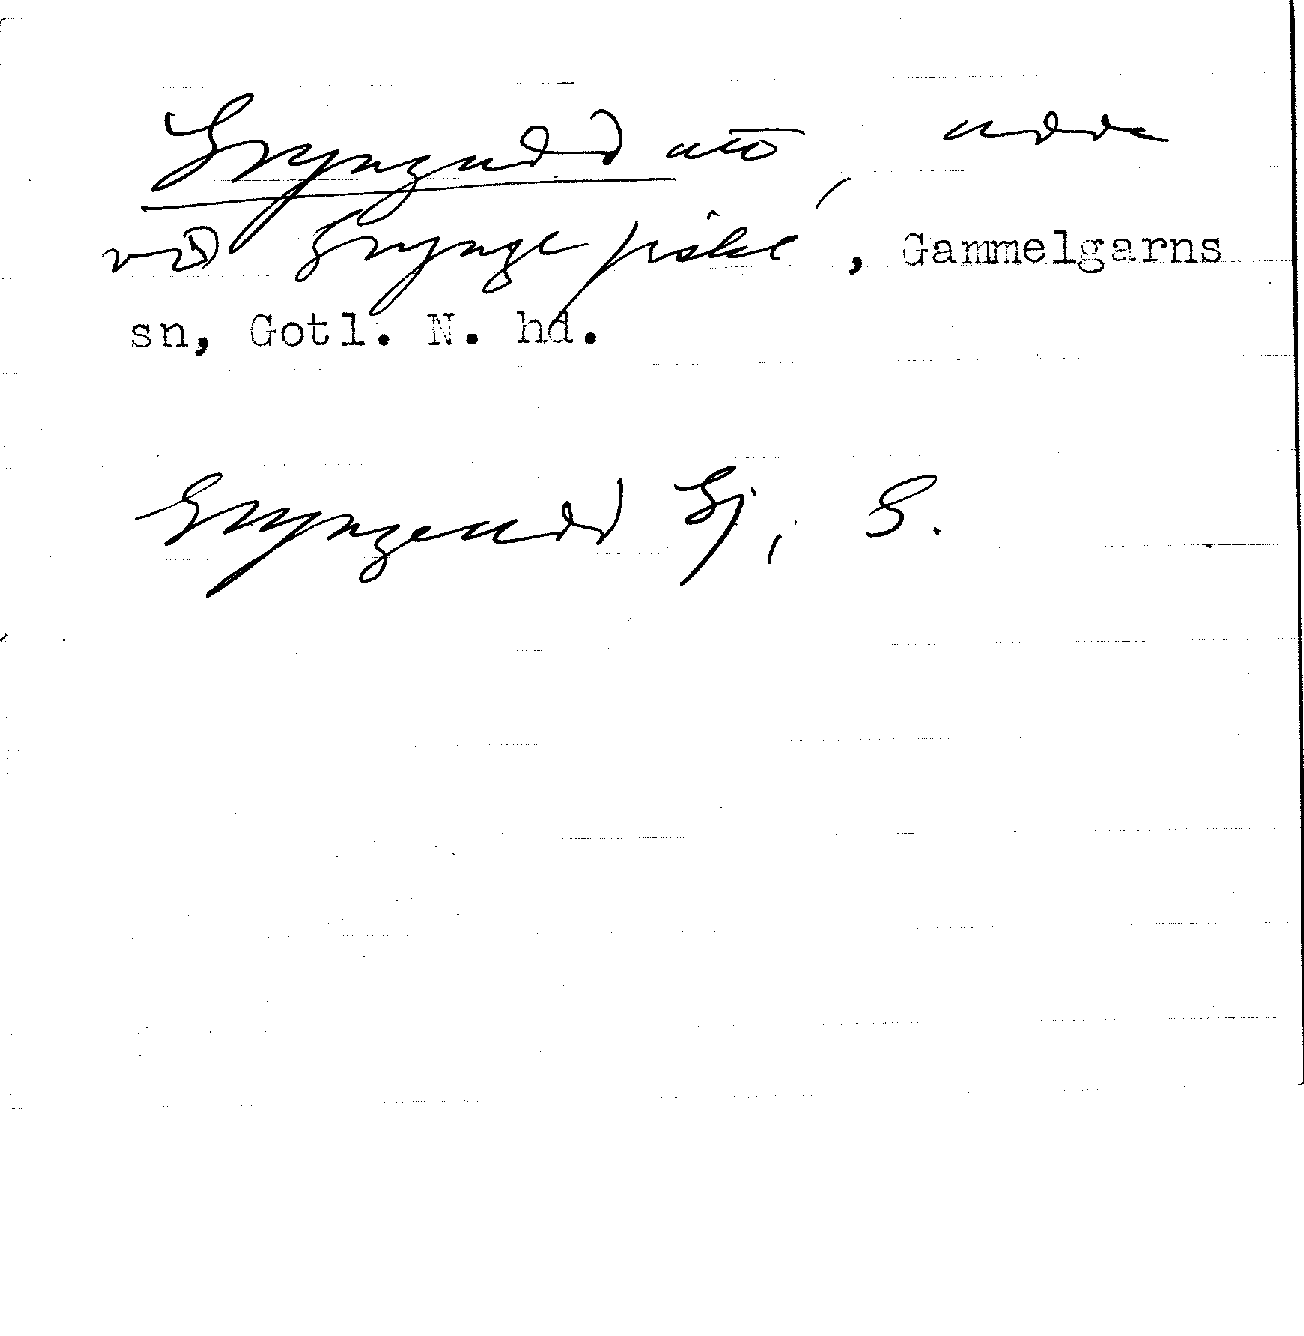 Gryngudd uto, udde
vid Grynge fiske, Gammelgarns
sn, Gotl. N. hd.
Gryngeudd Gj, S.